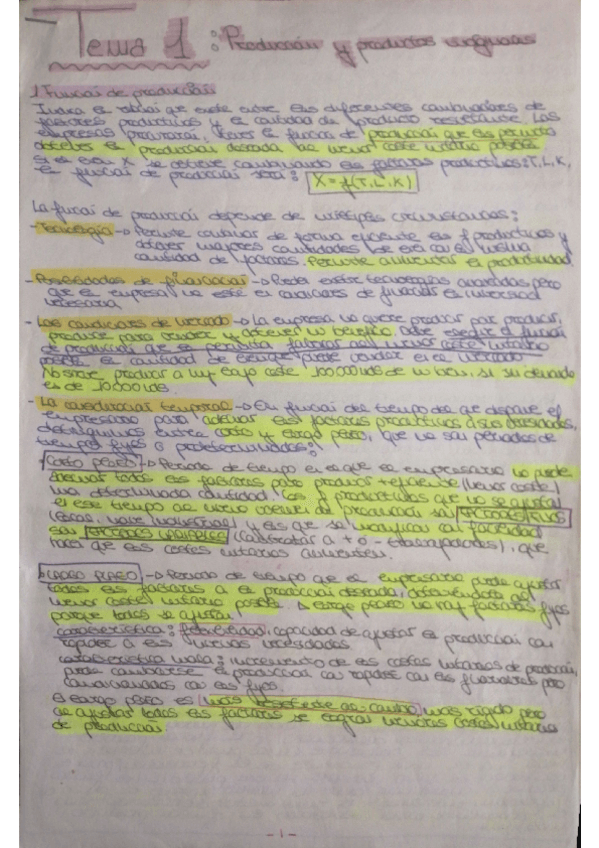 Tema 1: Producción y productos
1 Función de producción
Indica la relación que existe entre las diferentes combinaciones de
factores productivos y la cantidad de producto resultante. Las
empresas procurarán tener la función de producción que les permita
obtener la producción deseada al menor coste unitario posible
Si el bien X se obtiene combinando los factores productivos: T, L, K,
la función de producción será: X = f(T, L, K)
La función de producción depende de múltiples circunstancias:
- Tecnología -> Permite combinar de forma eficiente los f. productivos y
obtener mayores cantidades de con la misma
cantidad de factores. Permite aumentar la productividad
- Posibilidades de financiación -> Puede existir tecnologías avanzadas pero
que la empresa no esté en condiciones de financiar la inversión
necesaria
- Las condiciones de mercado -> La empresa no quiere producir por producir,
produce para vender y obtener un beneficio. Debe elegir la función
de producción que le permita fabricar al menor coste unitario
posible la cantidad de que puede vender en el mercado
No sirve producir a muy bajo coste 100000 uds de un bien, si su demanda
es de 10000 uds
- La temporal -> En función del tiempo de que dispone el
empresario para adecuar los factores productivos a sus necesidades,
distinguimos entre corto y largo plazo, que no son periodos de
tiempo fijos o predeterminados:
CORTO PLAZO -> Periodo de tiempo en el que el empresario no puede
todos los factores para producir + eficiente (menor coste)
una determinada cantidad. Los f. productivos que no se ajustan
en ese tiempo al nuevo de producción son FACTORES FIJOS
(local, nave industrial) y los que se modifican con facilidad
son FACTORES VARIABLES (contratar a + o - trabajadores), que
hace que los costes unitarios aumenten.
LARGO PLAZO -> Periodo de tiempo que el empresario puede ajustar
todos los factores a la producción deseada, obteniéndola al
menor coste unitario posible. A largo plazo no hay factores fijos
porque todos se ajustan.
característica: flexibilidad, capacidad de ajustar la producción con
rapidez a las nuevas necesidades
característica mala: incremento de los costes unitarios de producción,
puede cambiarse la producción con rapidez con los pero
con los fijos
El largo plazo es más al cambio, más rígido pero
se ajustan todos los factores se logran menores costes unitarios
de producción
- 1 -